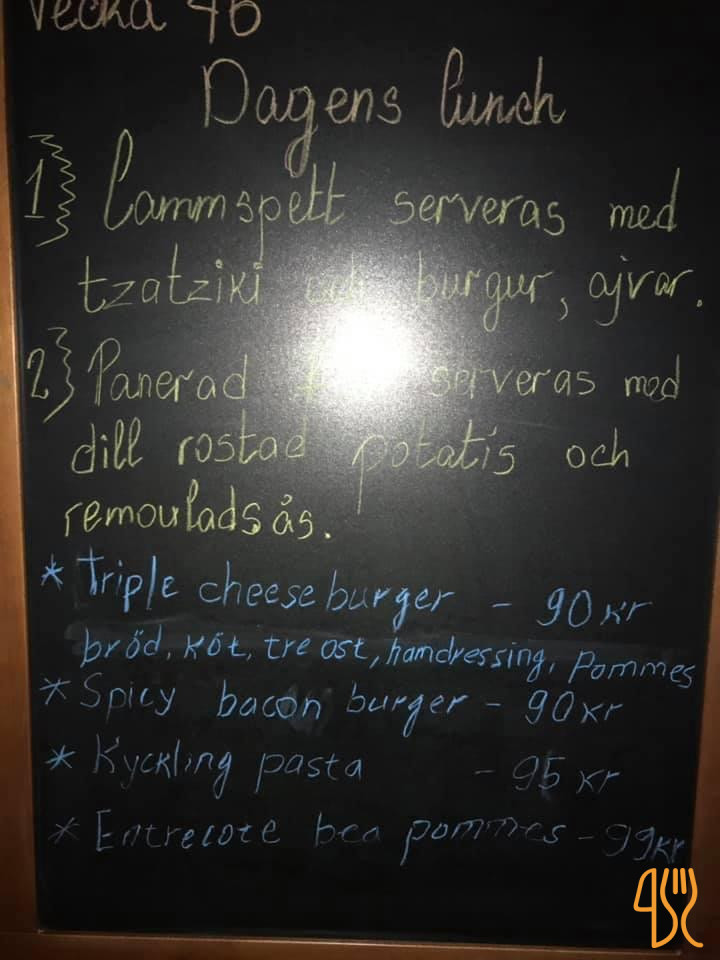 Vecka 46
Dagens lunch
1} Lammspett serveras med
tzatziki och burgur, ajvar.
2} Panerad serveras med
dill rostad potatis och
remouladsås.
* Triple cheeseburger - 90 kr
bröd, köt, tre ost, hamdressing, Pommes
* Spicy bacon burger - 90 kr
* Kyckling pasta - 95 kr
* Entrecote bea pommes - 99 kr